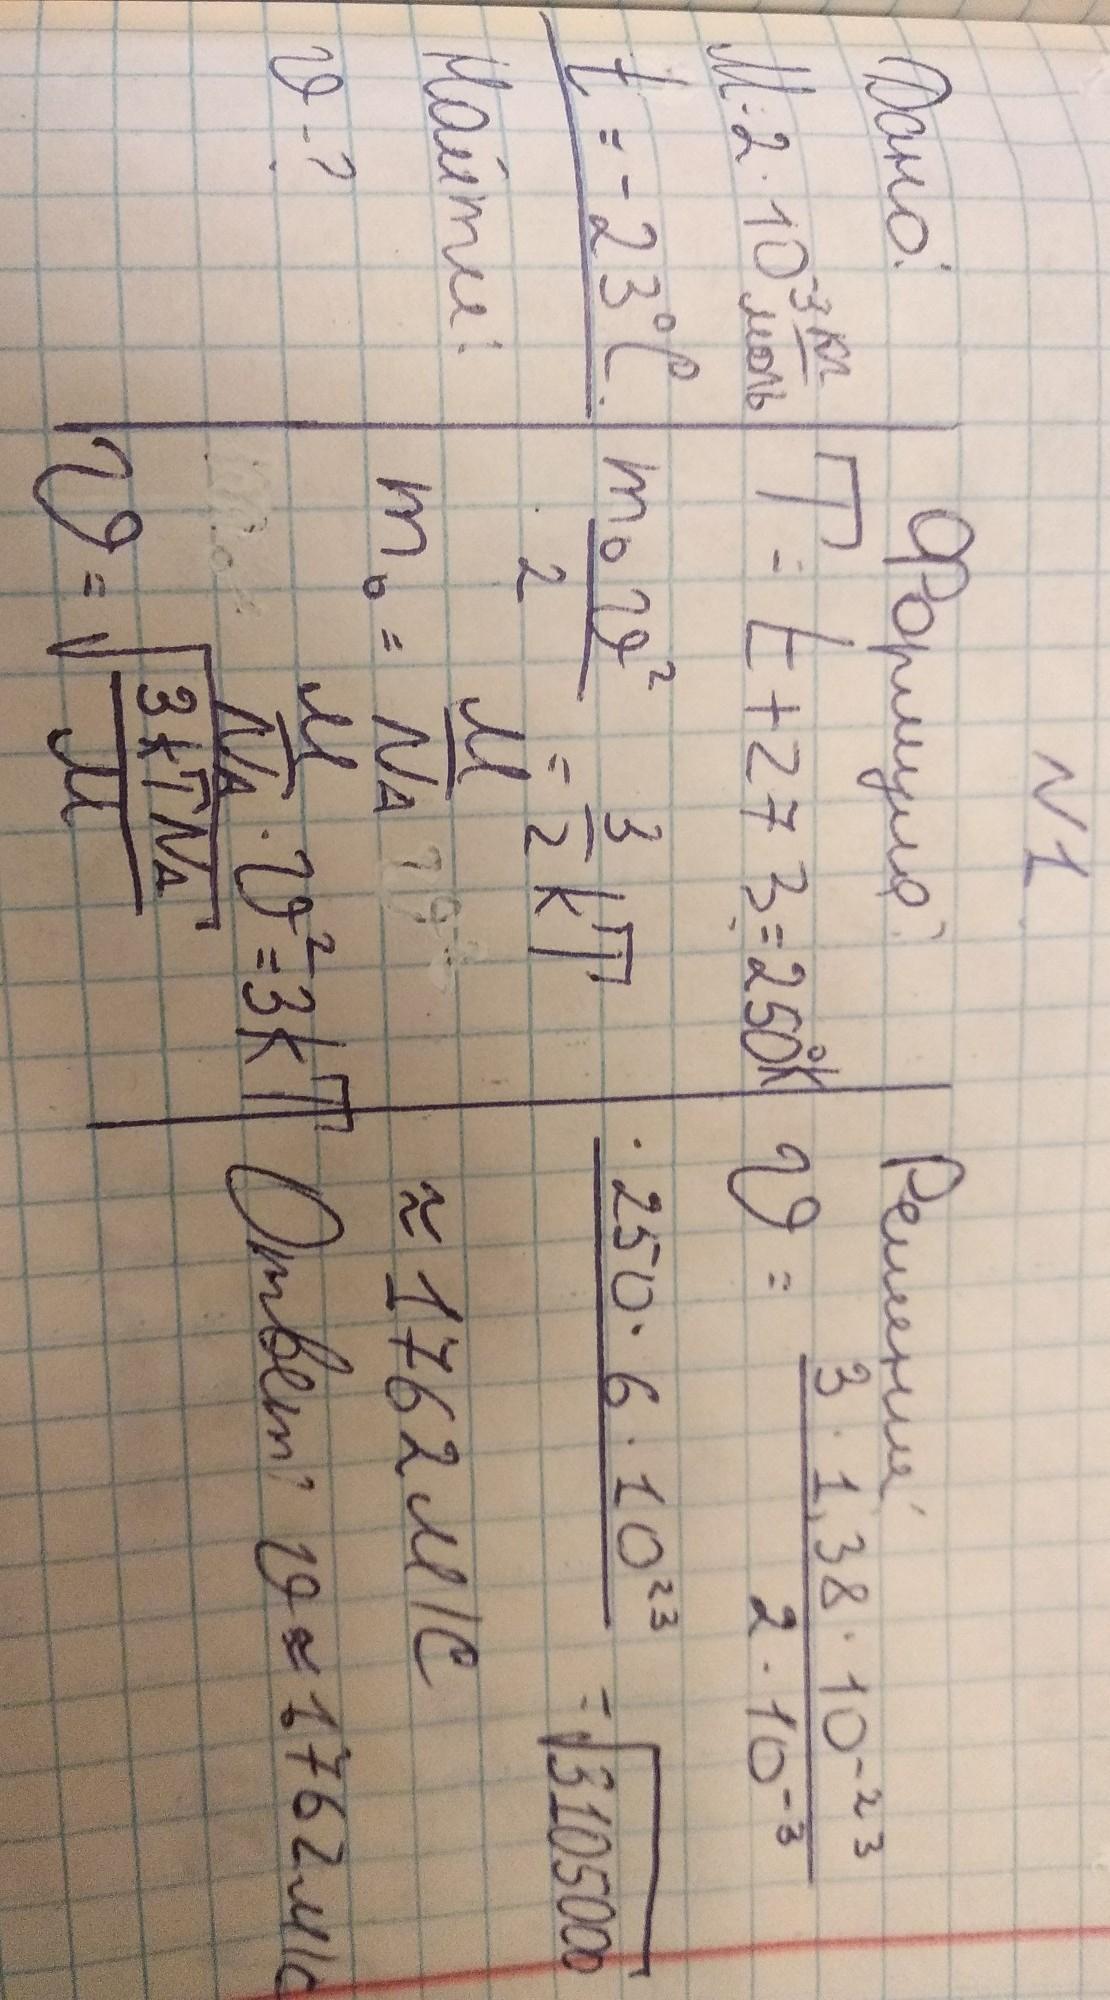 N1
Дано:
M = 2 · 10⁻³ кг/моль
t = -23°C.
Найти:
υ - ?
Формула:
T = t + 273 = 250°K
m₀υ²/2 = 3/2 kT
m₀ = M/Nᴀ
M/Nᴀ · υ² = 3kT
υ = √(3kTNᴀ/M)
Решение:
υ = 3 · 1,38 · 10⁻²³ / 2 · 10⁻³
· 250 · 6 · 10²³ = √3105000
≈ 1762 м/с
Ответ: υ ≈ 1762 м/с